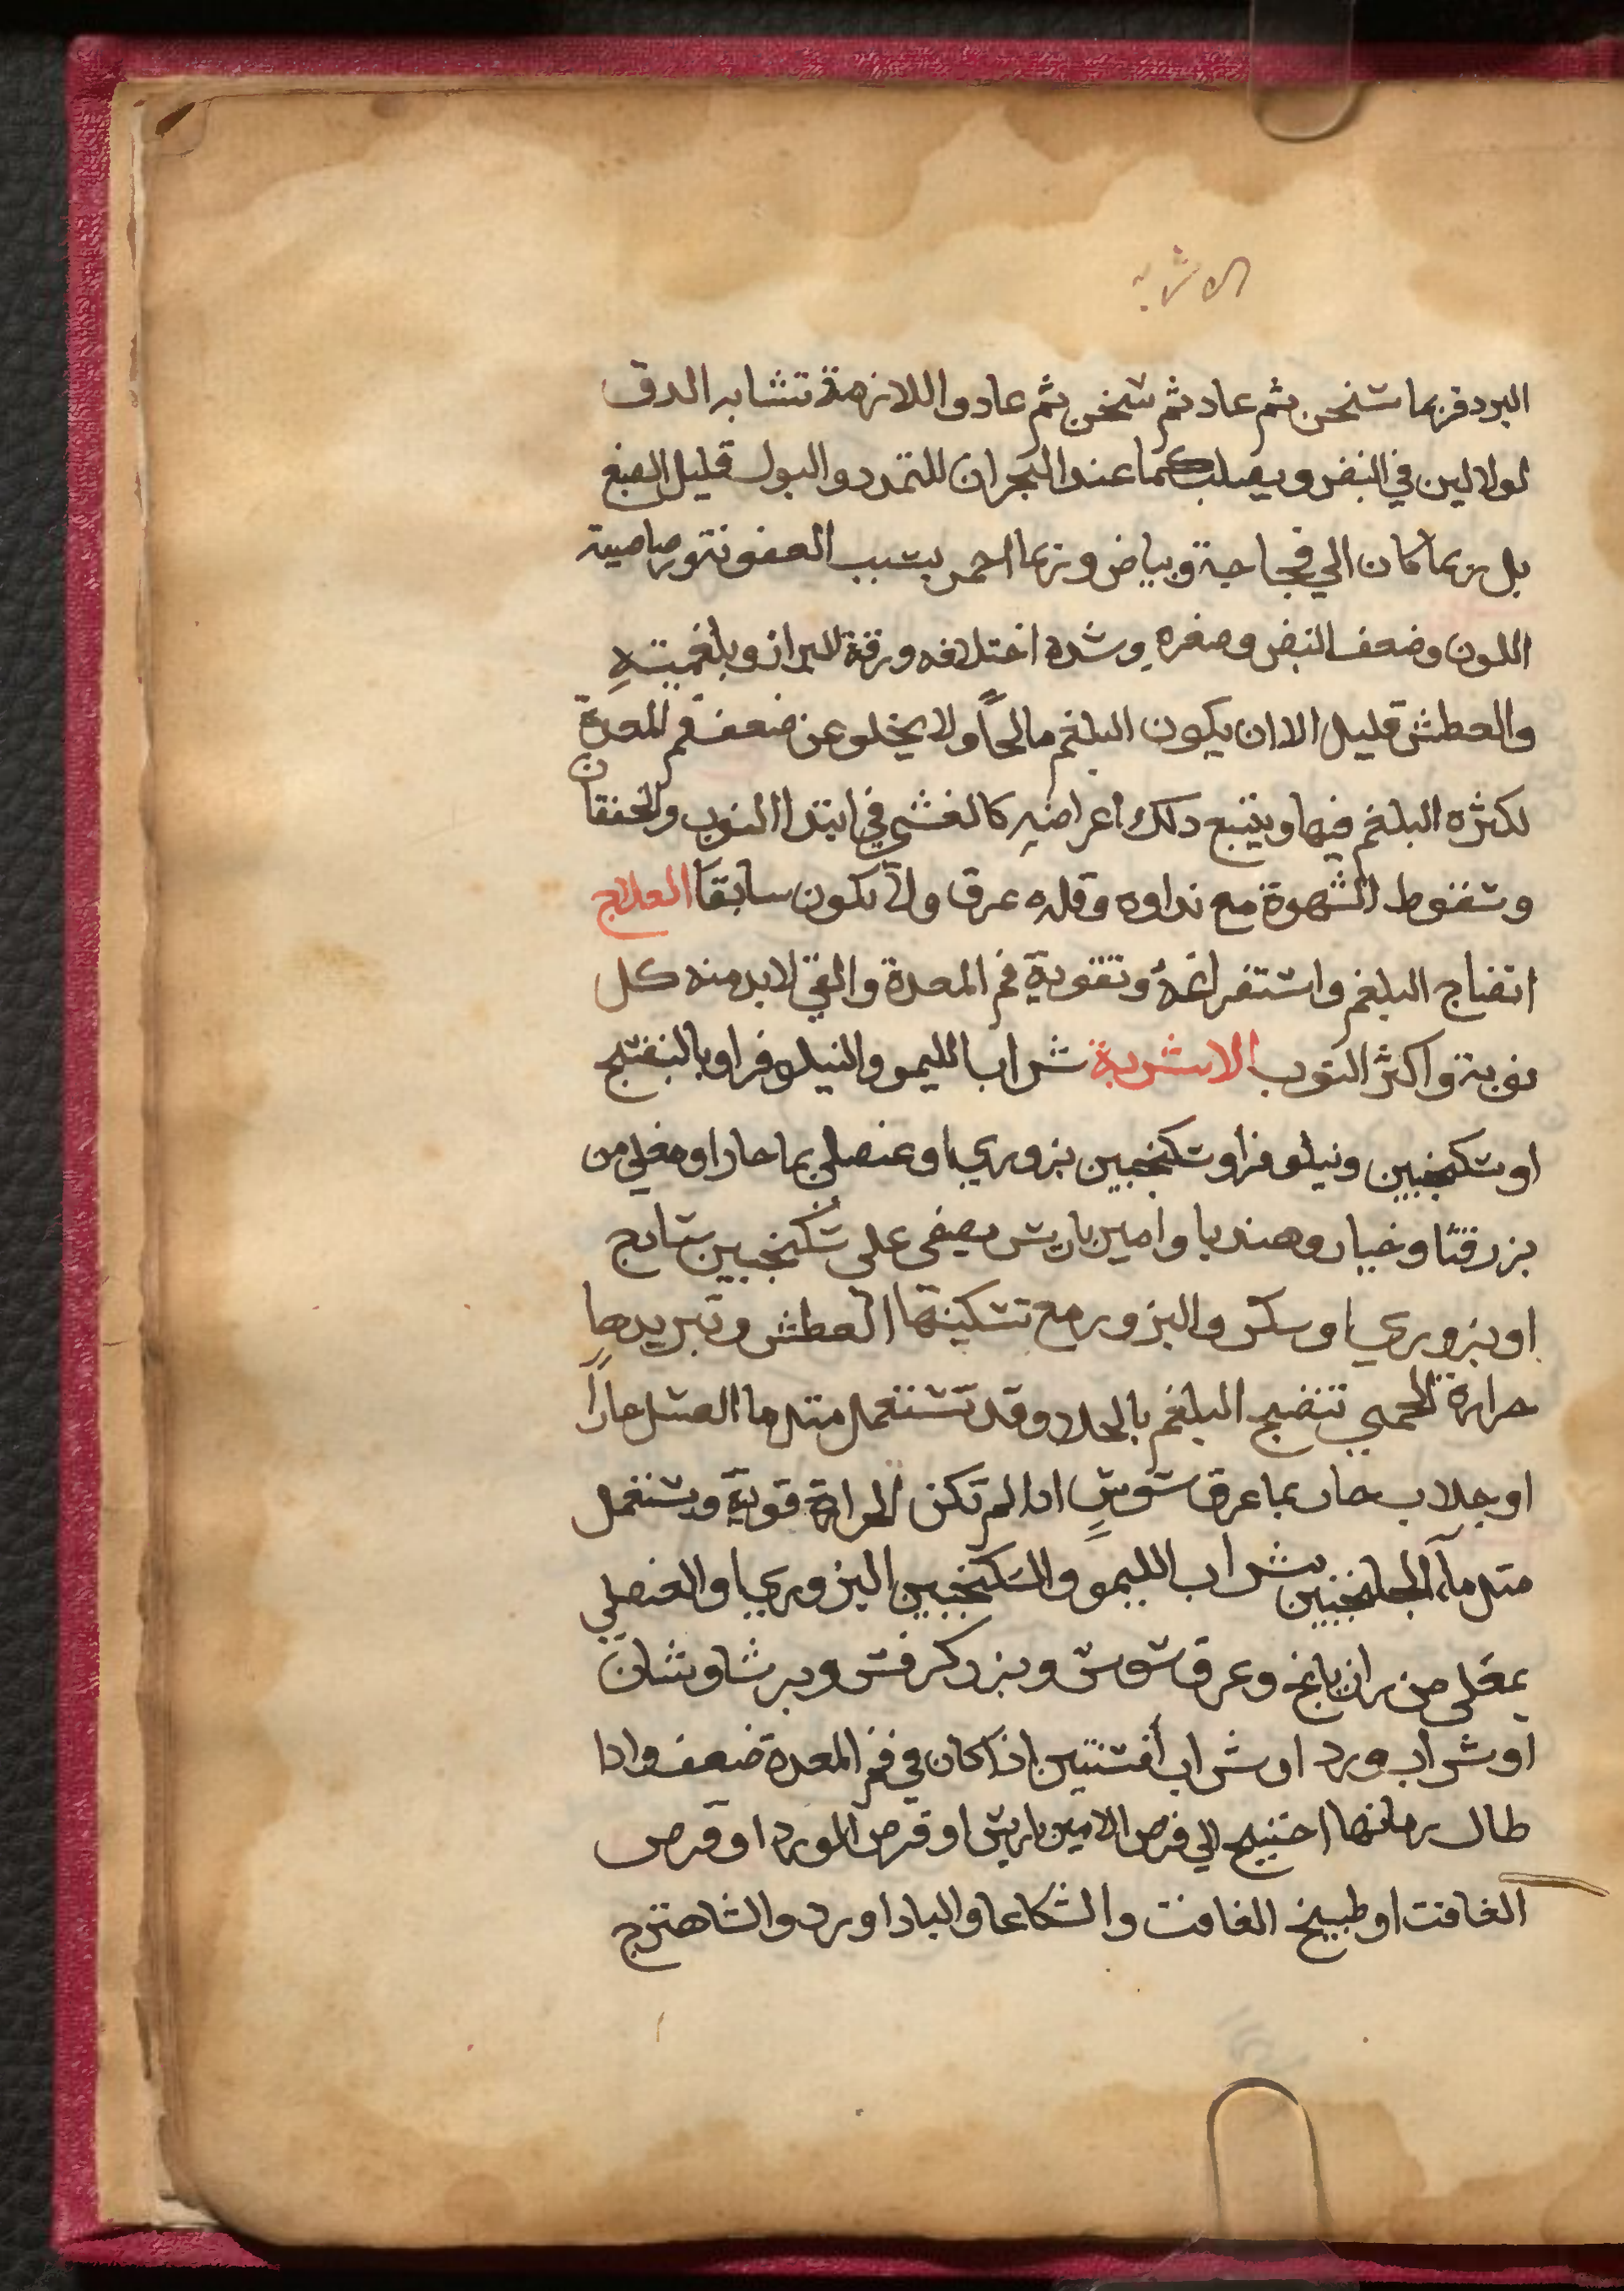 الاشربة
البرد فربما سخن ثم عاد ثم سخن ثم عاد واللازمة تشابه الدق
لولا لين في النبض ويصلب كما عند البحران للتمدد والبول قليل الصبغ
بل ربما كان الي فجاجة وبياض وربما احمر بسبب العفونة ورصاصية
اللون وضعف النبض وصغره وشدة اختلافه ورقة البراز وبلغميته
والعطش قليل الا ان يكون البلغم مالحاً ولا يخلو عن ضعف فم المعدة
لكثرة البلغم فيها ويتبع ذلك اعراضه كالغشي في ابتدا النوب والخفقان
وسقوط الشهوة مع نداوه وقله عرق ولا يكون سابقا العلاج
انضاج البلغم واستفراغه وتقوية فم المعدة والقي لابد منه كل
نوبة واكثر النوب الاشربة شراب الليمو والنيلوفر او بالبنفسج
او سكنجبين ونيلوفر او سكنجبين بزوري او عنصلي بما حار او مغلي من
بزر قثا وخيار وهندبا وامير باريس يصفى على سكنجبين سادج
او بزوري او سكر والبزور مع تسكينها العطش وتبريدها
حرارة الحمي تنضج البلغم بالجلا وقد تستعمل مثل ما العسل حاراً
او جلاب حار بما عرق سوس ادا لم تكن الحرارة قوية ويستعمل
مثل مآء الجلنجبين بشراب الليمو والسكنجبين البزوري او العنصلي
بمغلي من رازيانج وعرق سوس وبزر كرفس وبرشاوشان
او شراب ورد او شراب أفسنتين اذا كان في فم المعدة ضعف وادا
طال زمانها احتيج الي قرص الامير باريس او قرص الورد او قرص
الغافت او طبيخ الغافت والشكاعا والباداورد والشاهترج